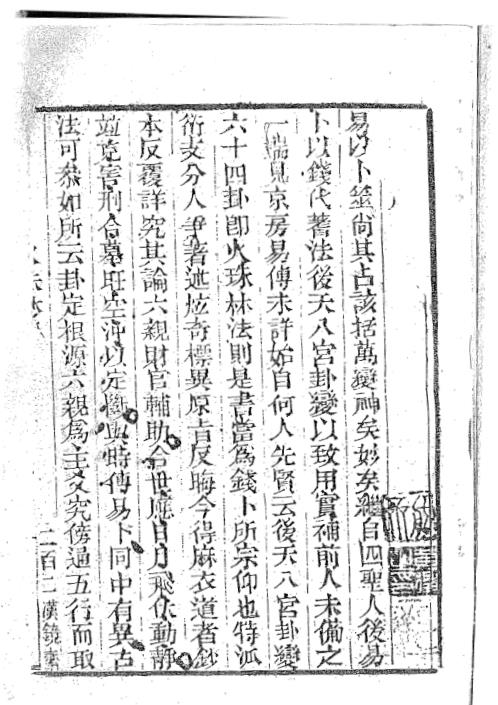 易以卜筮尚其占該括萬變神矣妙矣繼自四聖人後易
卜以錢代蓍法後天八宮卦變以致用實補前人未備之
一端見京房易傳未詳始自何人先賢云後天八宮卦變
六十四卦卽火珠林法則是書當爲錢卜所宗仰也特派
術支分人爭著述炫奇標異原旨反晦今得麻衣道者鈔
本反覆詳究其論六親財官輔助合世應日月飛伏動靜
並克害刑合墓旺空沖以定斷與時傳易卜同中有異古
法可叅如所云卦定根源六親爲主爻究傍通五行而取
二百二漢鏡齋